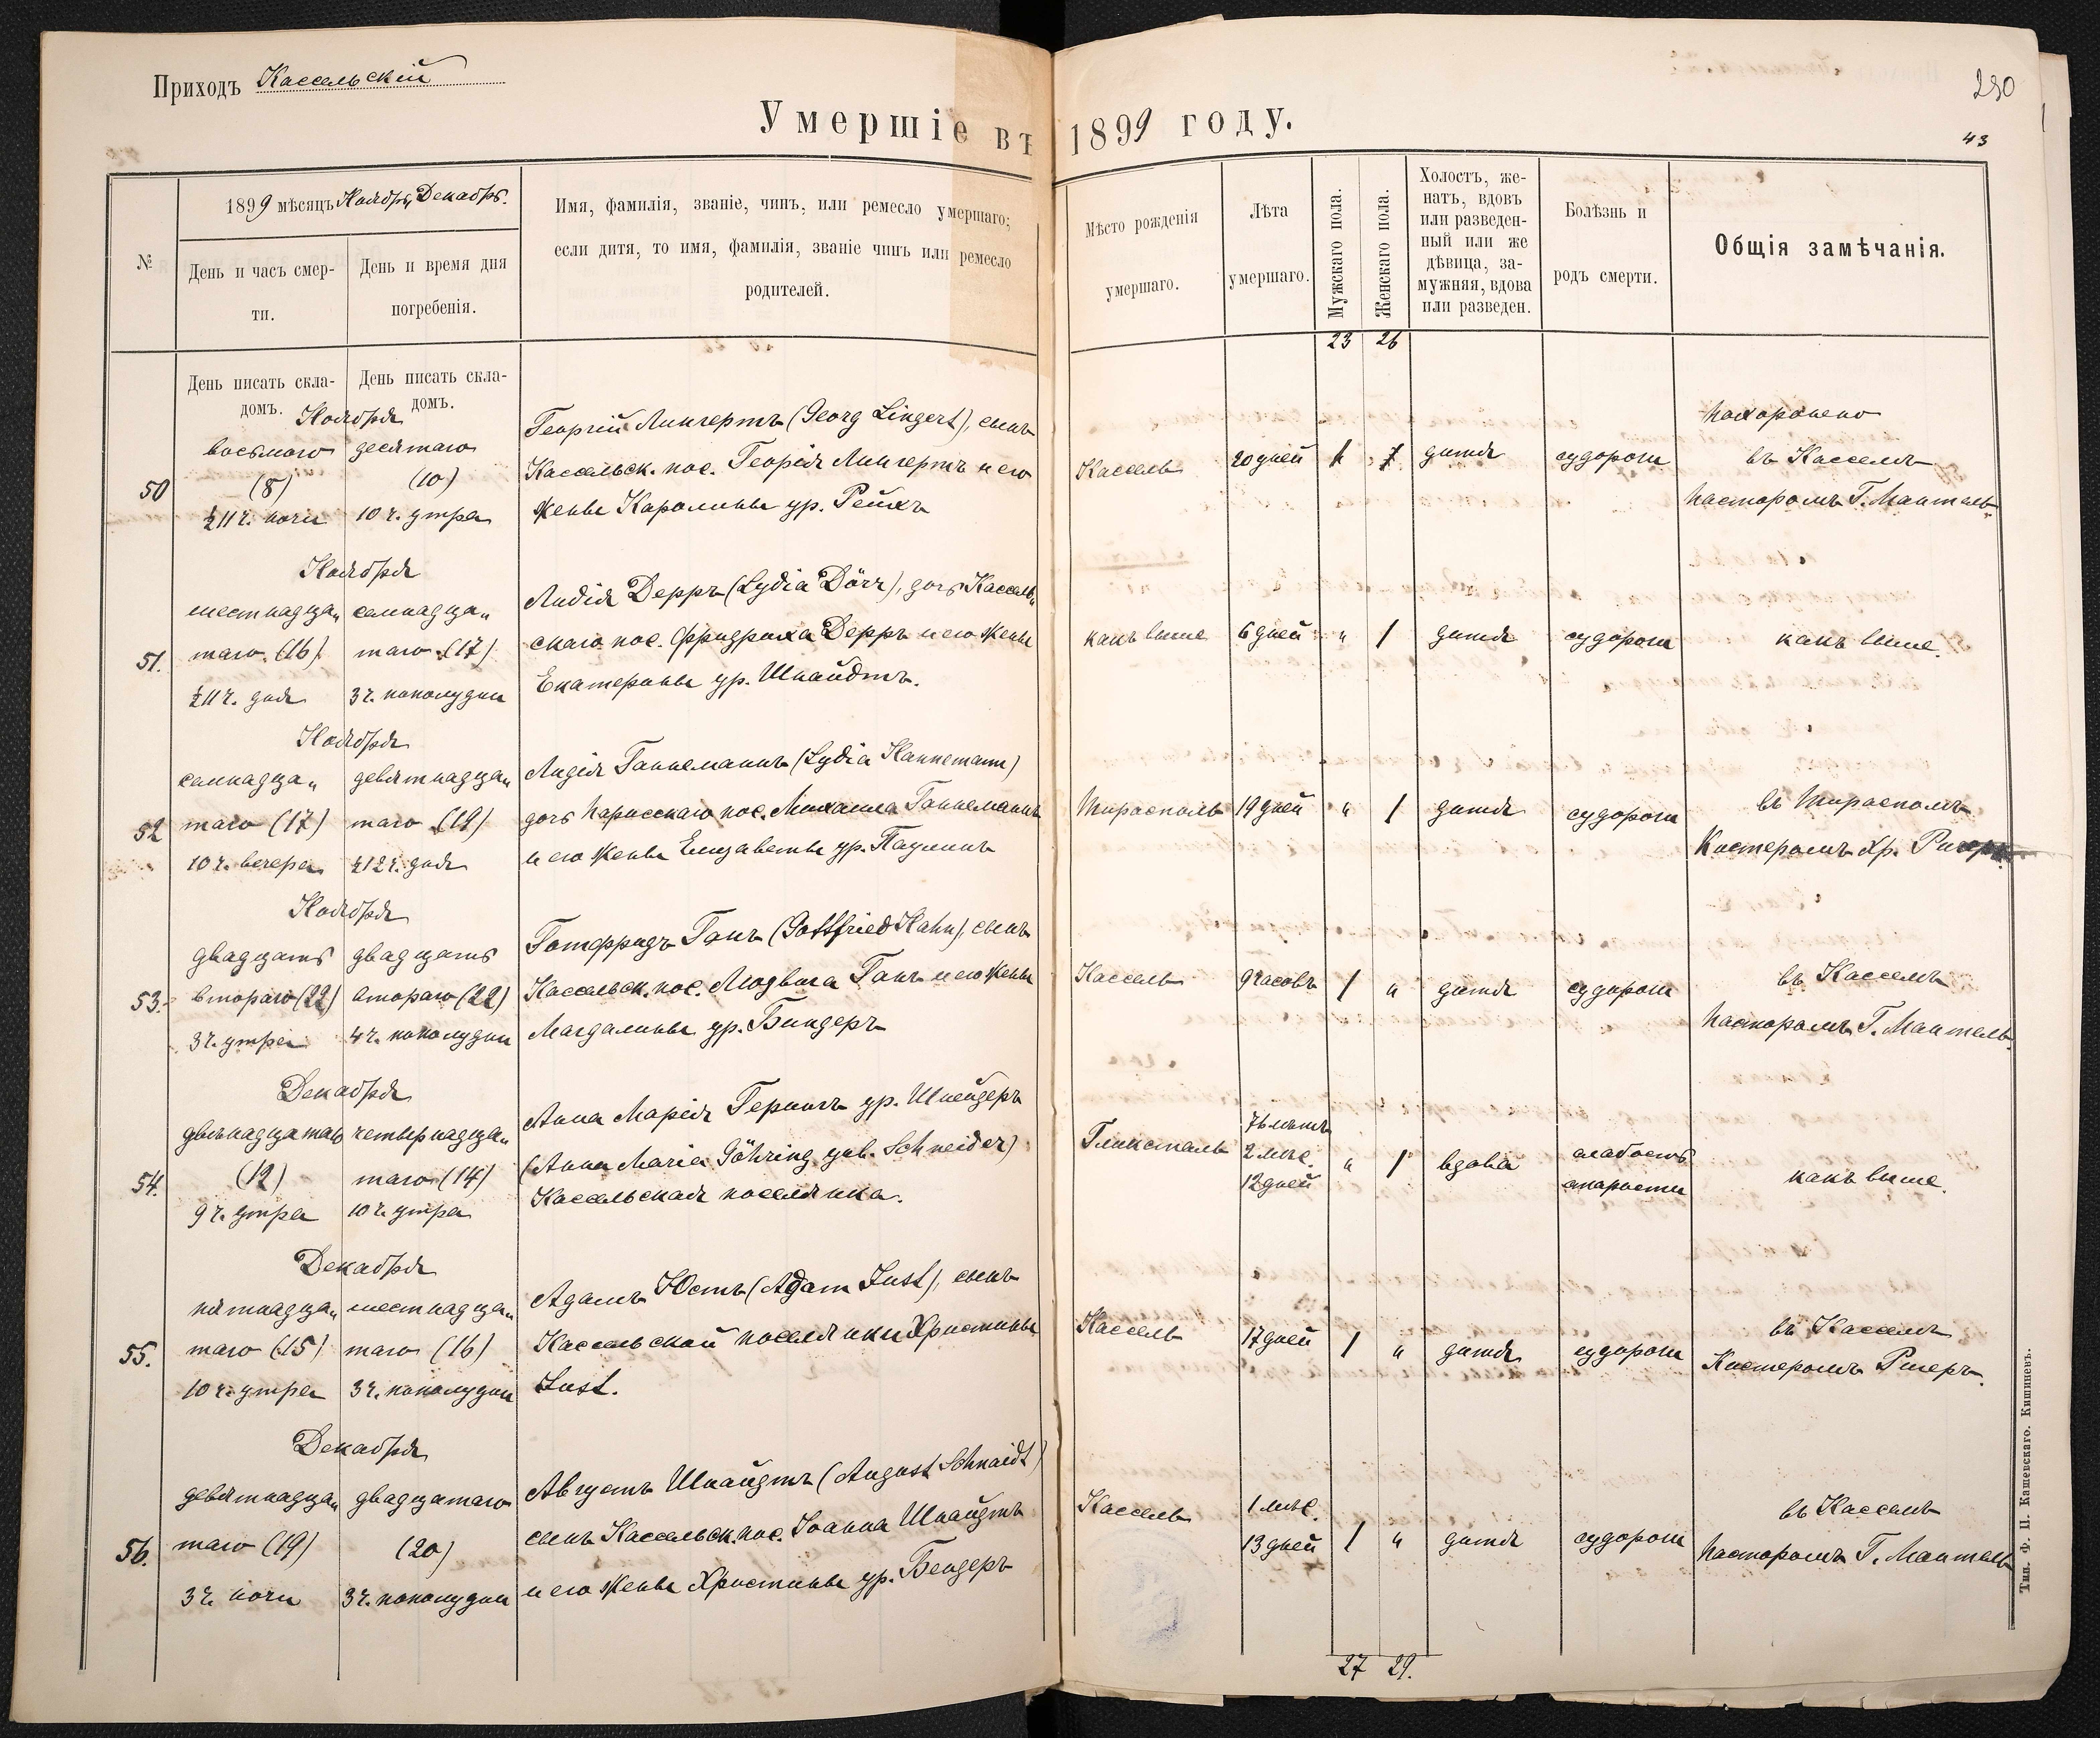 Приходъ Кассельскій
Умершіе въ 1899 году.
230
43
№
1899 мѣсяцъ Ноябрь, Декабрь.
День и часъ смер-
ти.
День и время дня
погребенія.
Имя, фамилія, званіе, чинъ, или ремесло умершаго;
если дитя, то имя, фамилія, званіе чинъ или ремесло
родителей.
Мѣсто рожденія
умершаго.
Лѣта
умершаго.
Мужскаго пола.
Женскаго пола.
Холостъ, же-
натъ, вдовъ
или разведен-
ный или же
дѣвица, за-
мужняя, вдова
или разведен.
Болѣзнь и
родъ смерти.
Общія замѣчанія.
23 26
День писать скла-
домъ.
День писать скла-
домъ.
50
Ноября
восьмого
(8)
½11 ч. ночи
десятаго
(10)
10 ч. утра
Георгій Лингертъ (Georg Lingert), сынъ
Кассельск. пос. Георгія Лингертъ и его
жены Каролины ур. Рейхъ
Кассель
20 дней
1
дитя
судороги
похоронено
въ Касселѣ
пасторомъ Г. Мантель
51.
Ноября
шестнадца„
таго (16)
½11 ч. дня
семнадца„
таго (17)
3 ч. пополудни
Лидія Дерръ (Lydia Dörr), дочь Кассель„
скаго пос. Фридриха Дерръ и его жены
Екатерины ур. Шнайдтъ.
какъ выше
6 дней
„ 1
дитя
судороги
какъ выше.
52
Ноября
семнадца„
таго (17)
10 ч. вечера
девятнадца„
таго (19)
½12 ч. дня
Лидія Ганнеманнъ (Lydia Hannemann)
дочь Парисскаго пос. Михаила Ганнеманнъ
и его жены Елизаветы ур. Паулинъ
Тирасполь
19 дней
„ 1
дитя
судороги
въ Тирасполѣ
Кистеромъ Хр. Ригеръ
53.
Ноября
двадцать
втораго (22)
3 ч. утра
двадцать
втораго (22)
4 ч. пополудни
Готфридъ Ганъ (Gottfried Hahn), сынъ
Кассельск. пос. Людвига Ганъ и его жены
Магдалины ур. Биндеръ
Кассель
9 часовъ
1 „
дитя
судороги
въ Касселѣ
пасторомъ Г. Мантель.
54.
Декабря
двѣнадцатаго
(12)
9 ч. утра
четырнадца„
таго (14)
10 ч. утра
Анна Марія Герингъ ур. Шнейдеръ
(Anna Maria Göhring geb. Schneider)
Кассельская поселянка.
Глюксталь
76 лѣтъ
2 мѣс.
12 дней
„ 1
вдова
слабость
старости
какъ выше.
55.
Декабря
пятнадца„
таго (15)
10 ч. утра
шестнадца„
таго (16)
3 ч. пополудни
Адамъ Юстъ (Adam Just), сынъ
Кассельской поселянки Христины
Just.
Кассель
17 дней
1 „
дитя
судороги
въ Касселѣ
Кистеромъ Ригеръ.
56.
Декабря
девятнадца„
таго (19)
3 ч. ночи
двадцатаго
(20)
3 ч. пополудни
Августъ Шнайдтъ (August Schnaidt)
сынъ Кассельск. пос. Іоанна Шнайдтъ
и его жены Христины ур. Бендеръ
Кассель
1 мѣс.
13 дней
1 „
дитя
судороги
въ Касселѣ
пасторомъ Г. Мантель
27 29.
Тип. Ф. П. Кашевскаго. Кишиневъ.